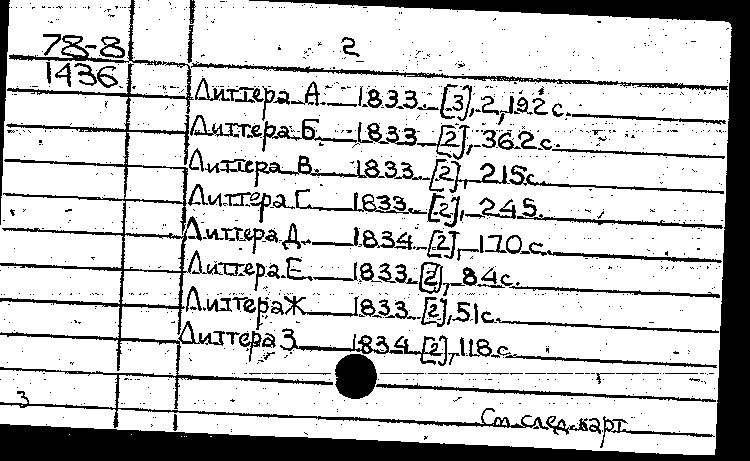 78-8
2
1436
Литтера А. 1833. [3], 2, 192 с.
Литтера Б. 1833 [2], 362 с.
Литтера В. 1833 [2], 215 с.
Литтера Г. 1833. [2], 245.
Литтера Д. 1834 [2], 170 с.
Литтера Е. 1833. [2], 84 с.
Литтера Ж 1833 [2], 51 с.
Литтера З 1834 [2], 118 с.
3
См. след. карт.